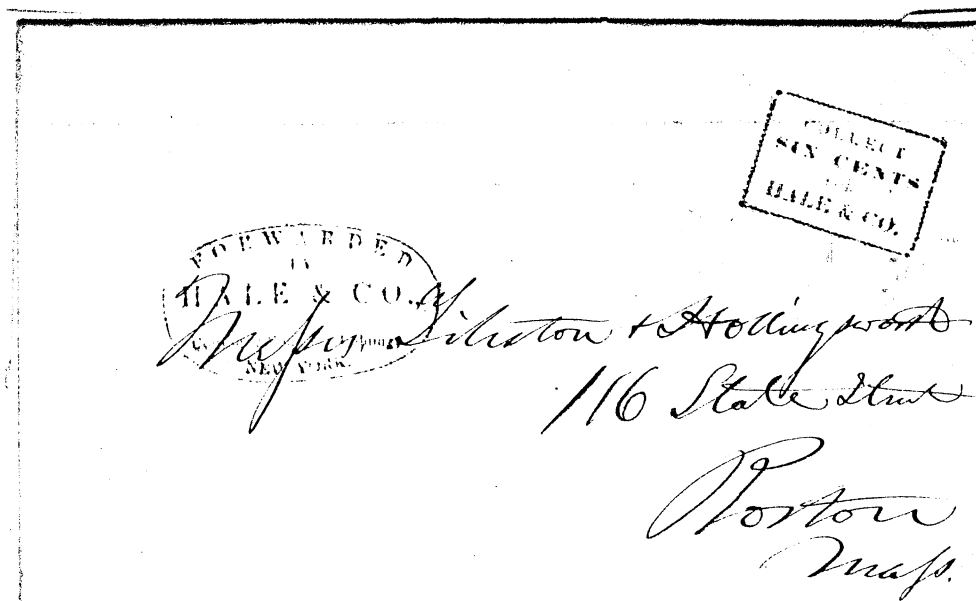 COLLECT
SIX CENTS
HALE & CO.
FORWARDED
BY
HALE & CO.
NEW YORK.
Messrs Tileston & Hollingsworth
116 State Street
Boston
Mass.